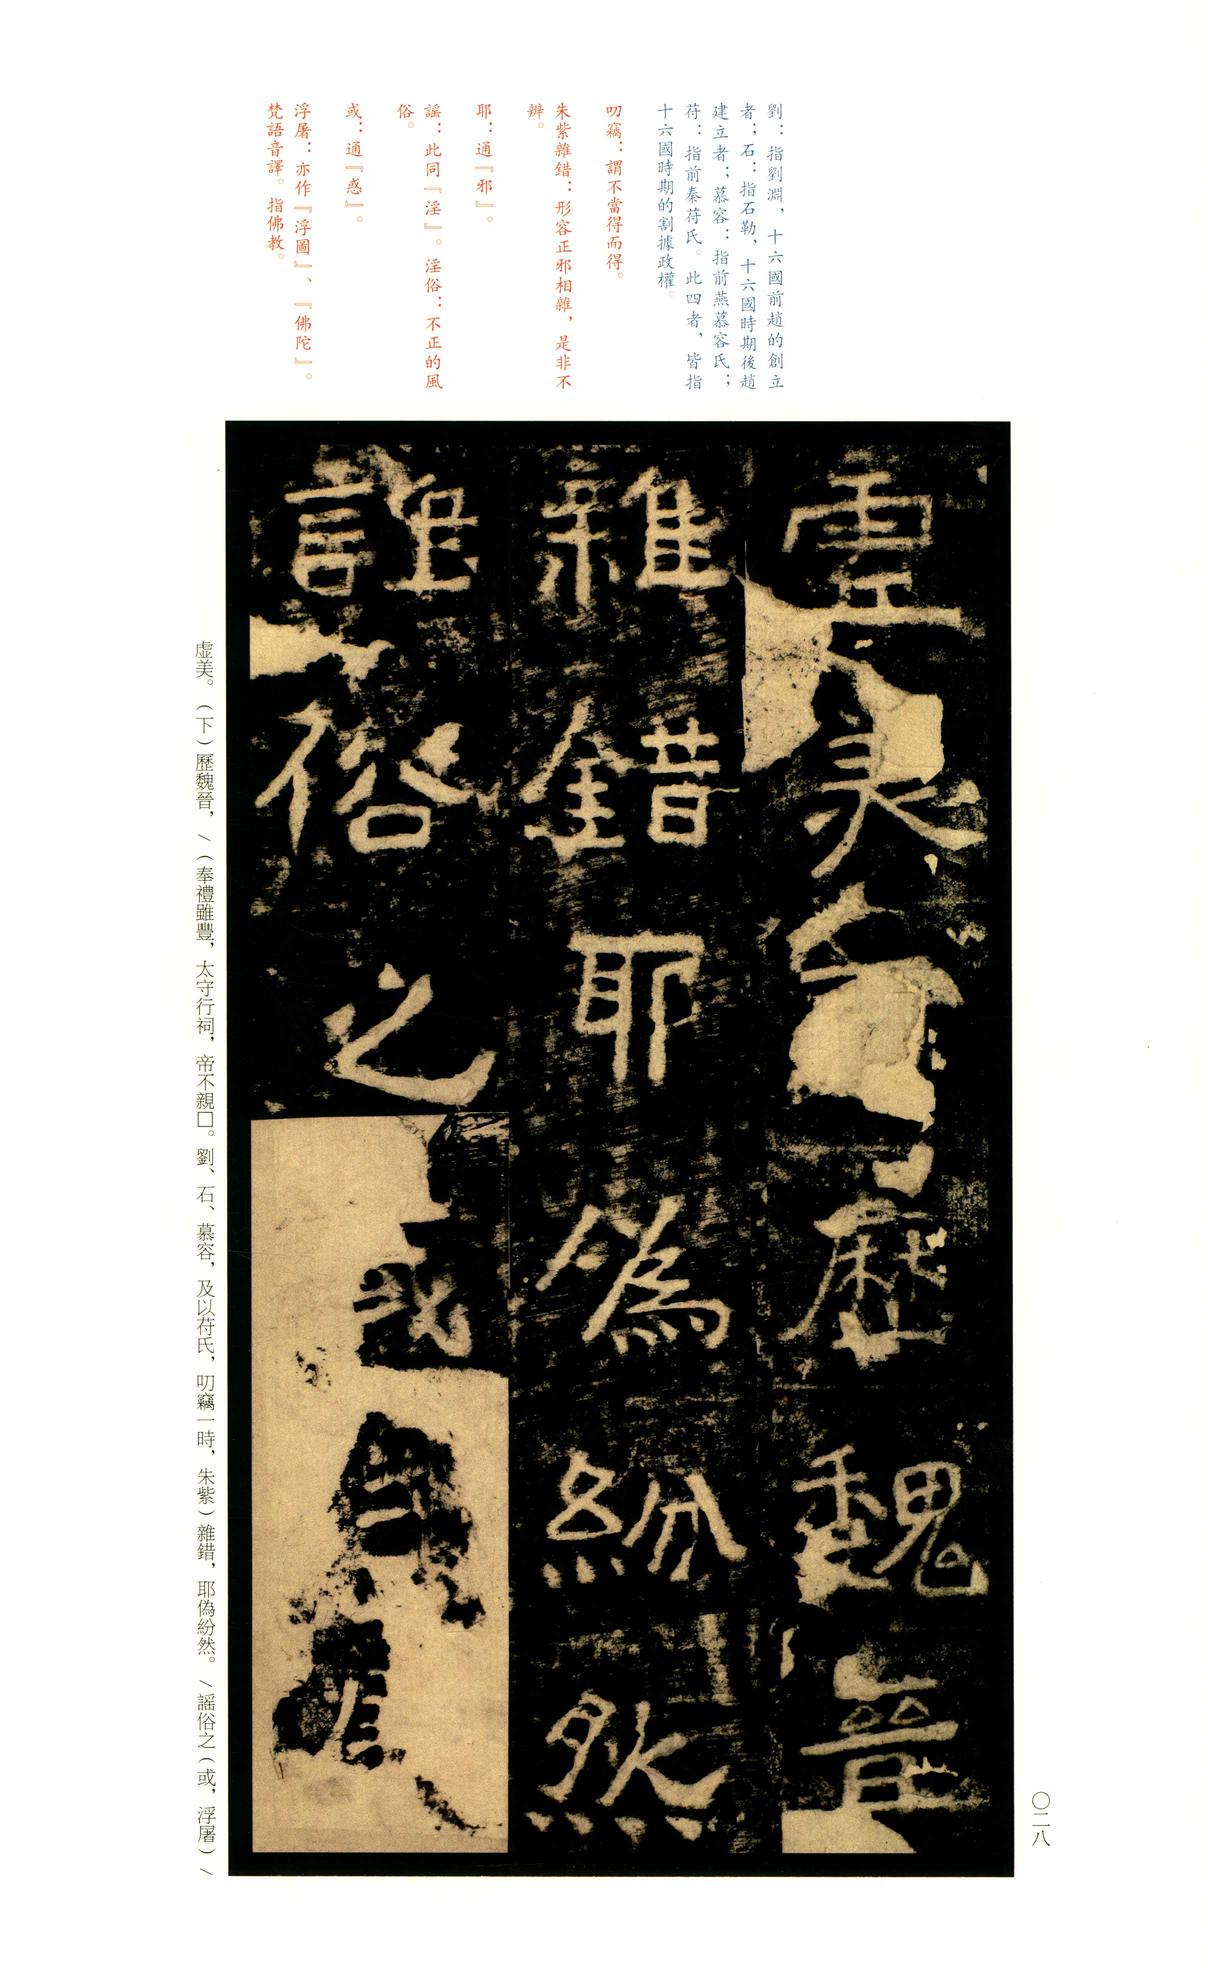 劉：指劉淵，十六國前趙的創立
者；石：指石勒，十六國時期後趙
建立者；慕容：指前燕慕容氏；
苻：指前秦苻氏。此四者，皆指
十六國時期的割據政權。
叨竊：謂不當得而得。
朱紫雜錯：形容正邪相雜，是非不
辨。
耶：通『邪』。
謡：此同『淫』。淫俗：不正的風
俗。
或：通『惑』。
浮屠：亦作『浮圖』、『佛陀』。
梵語音譯。指佛教。
虛美 歷魏晉
雜錯耶偽紛然
謡俗之或
虛美。（下）歷魏晉，/（奉禮雖豐，太守行祠，帝不親□。劉、石、慕容，及以苻氏，叨竊一時，朱紫）雜錯，耶偽紛然。/謡俗之（或，浮屠）/
〇二八